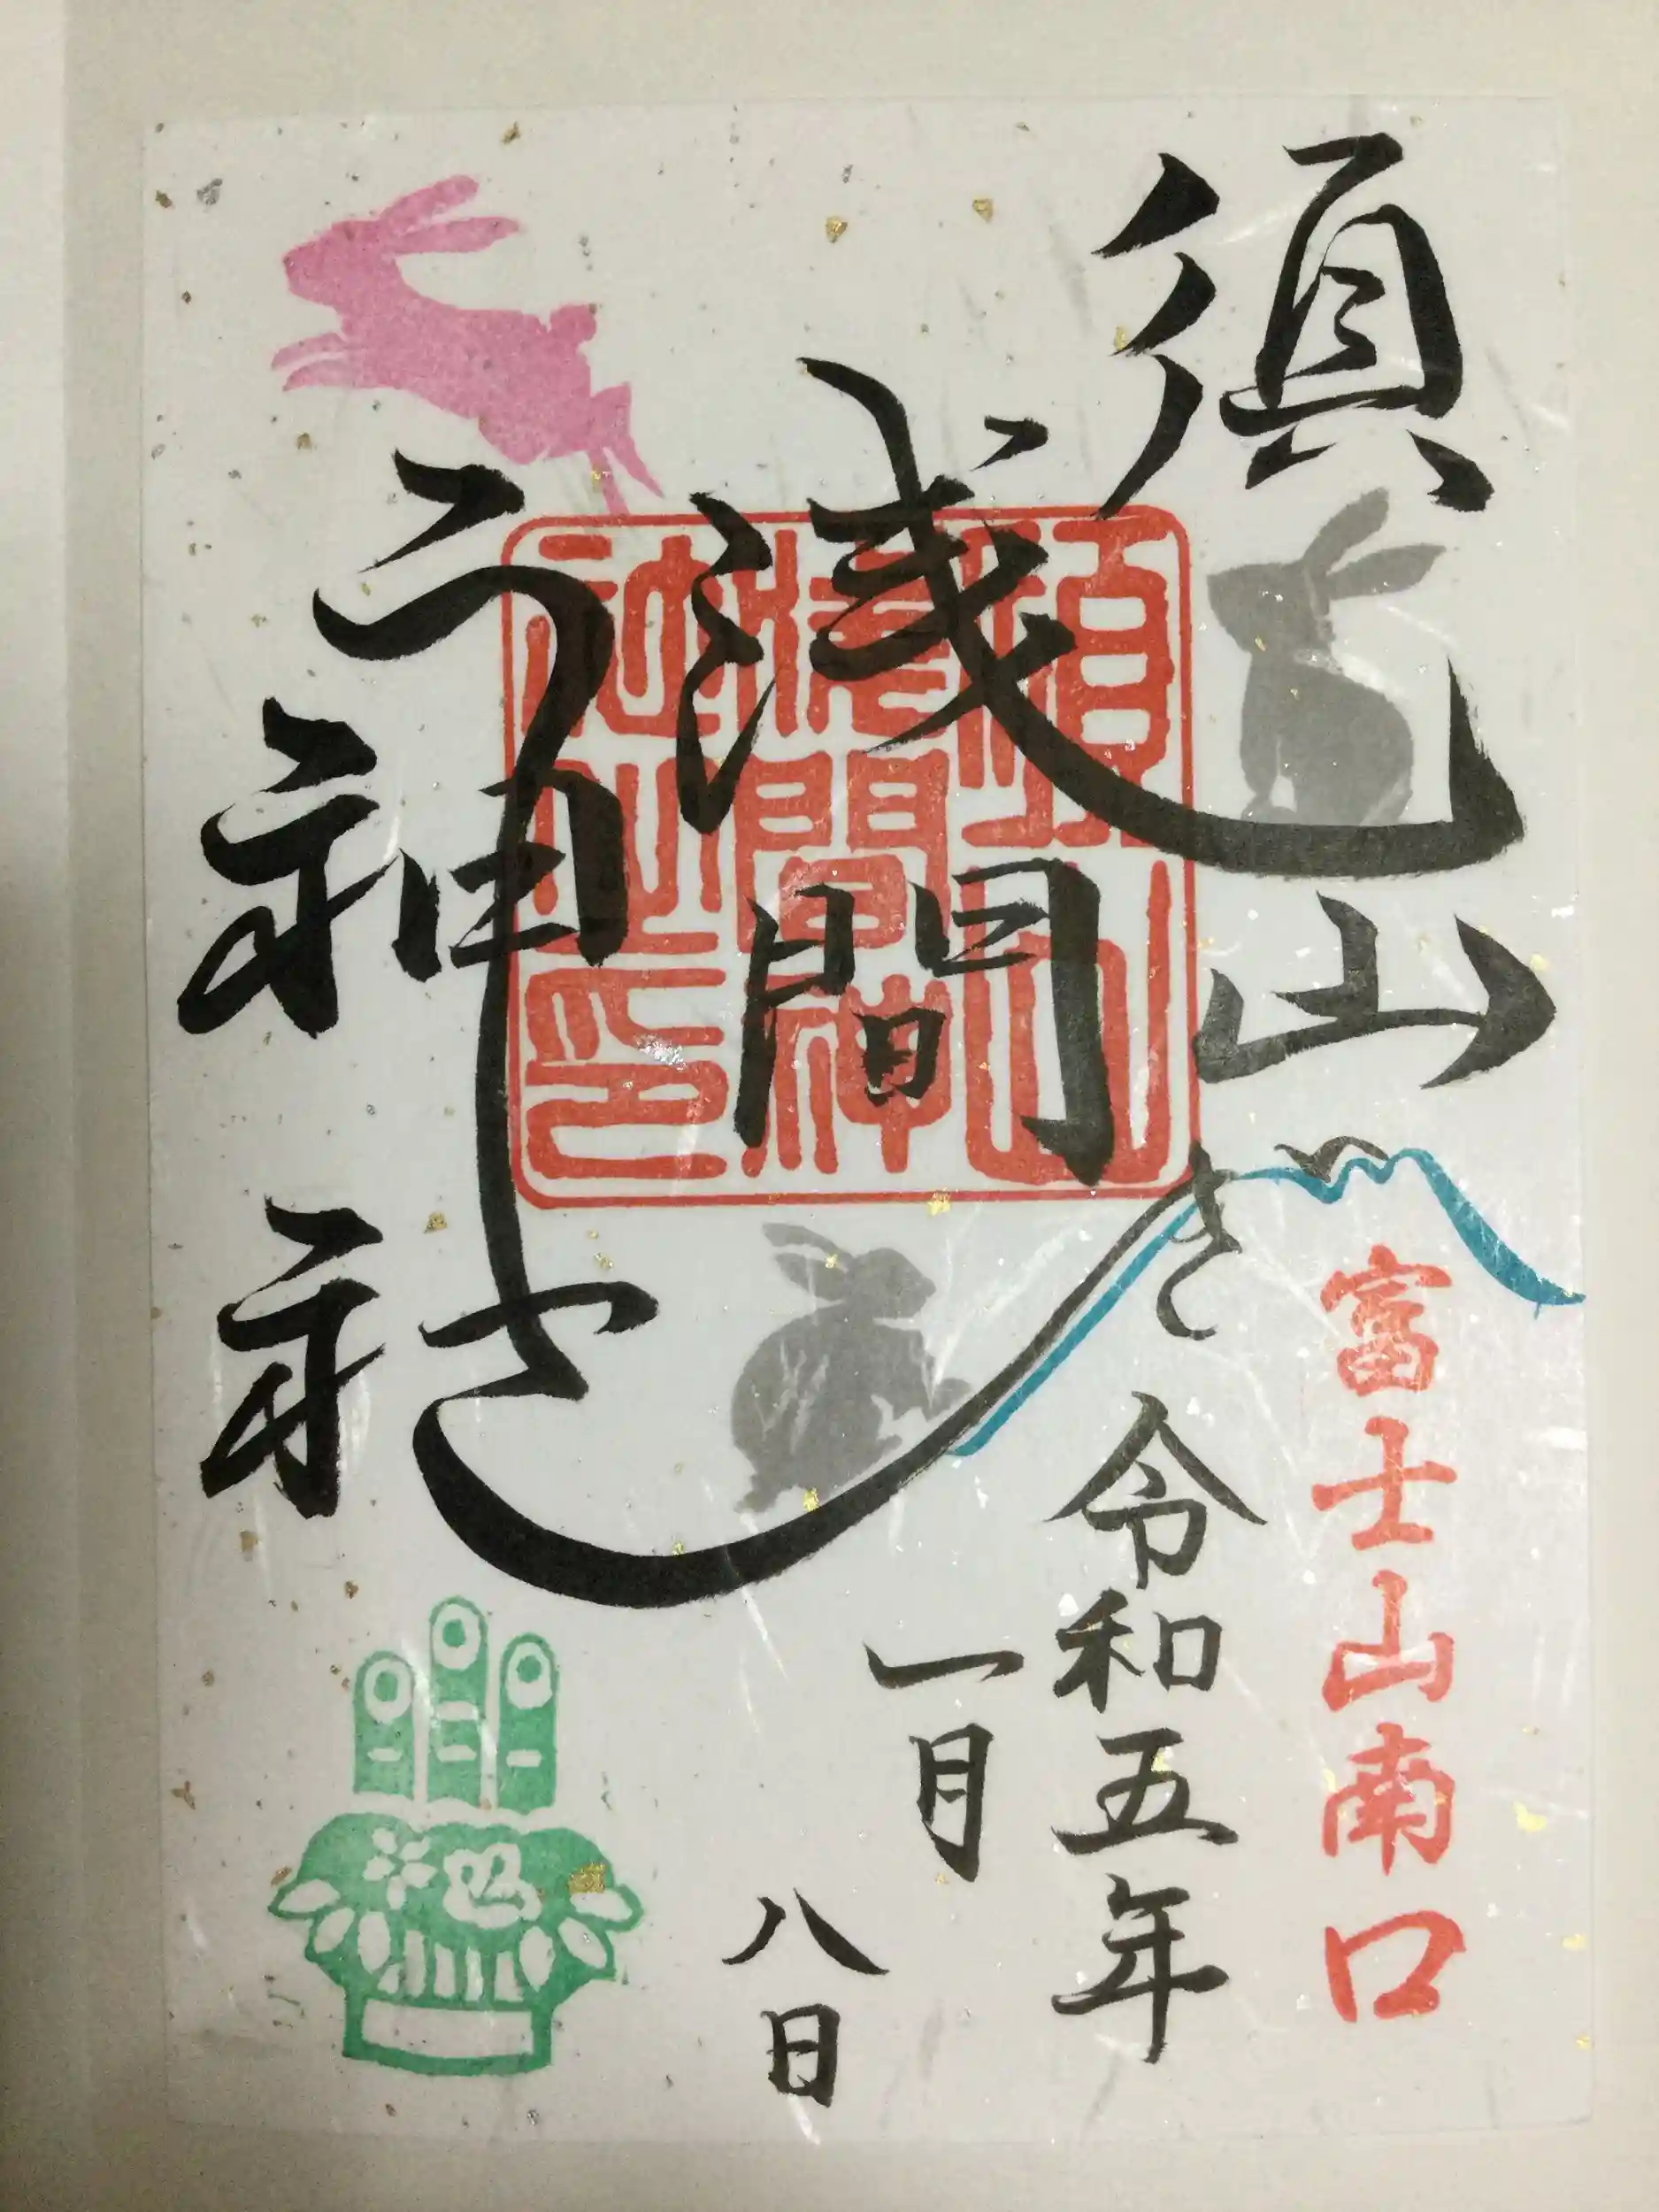 須山
浅間
神社
うさぎ
富士山南口
令和五年
一月
八日
須山
淺間神
社之印